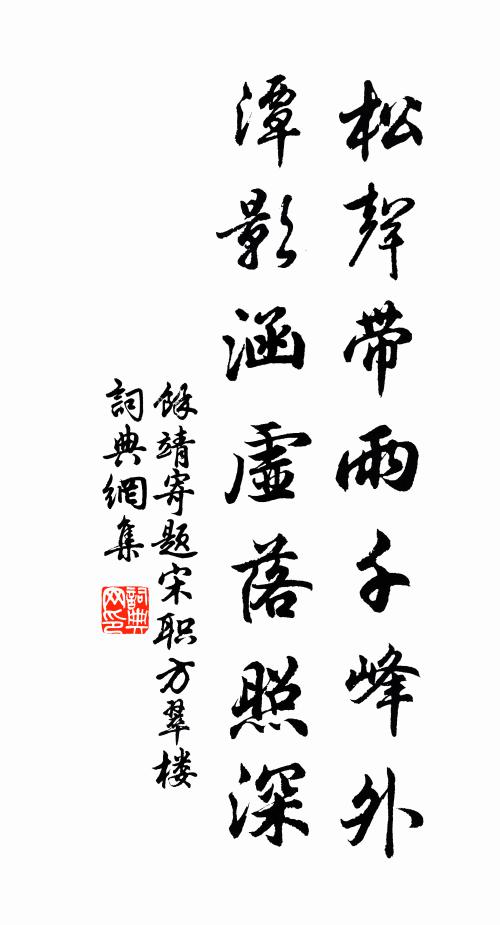 松聲帶雨千峰外
潭影涵虛落照深
餘靖寄題宋职方翠楼
詞典網集
詞典网印